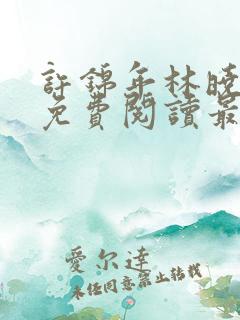 許錦年林曉
免費閱讀最
愛尔達
未经同意禁止转载